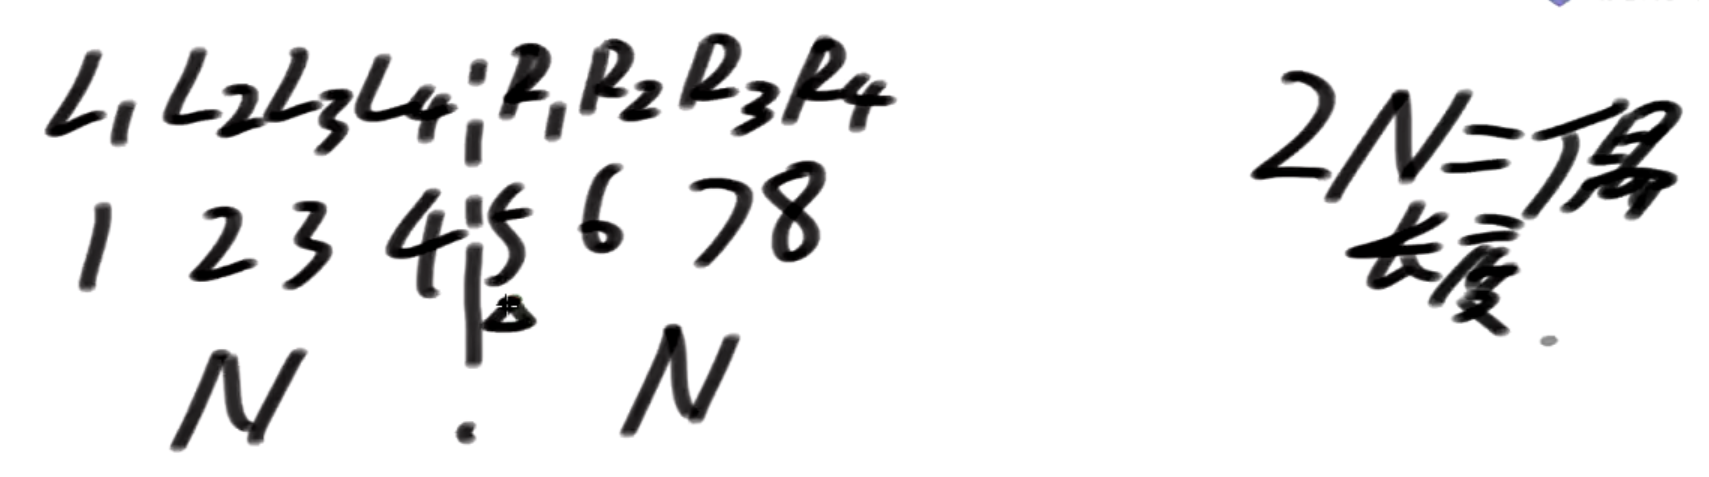 L₁ L₂ L₃ L₄ R₁ R₂ R₃ R₄
1 2 3 4 5 6 7 8
N N
2N=
长度